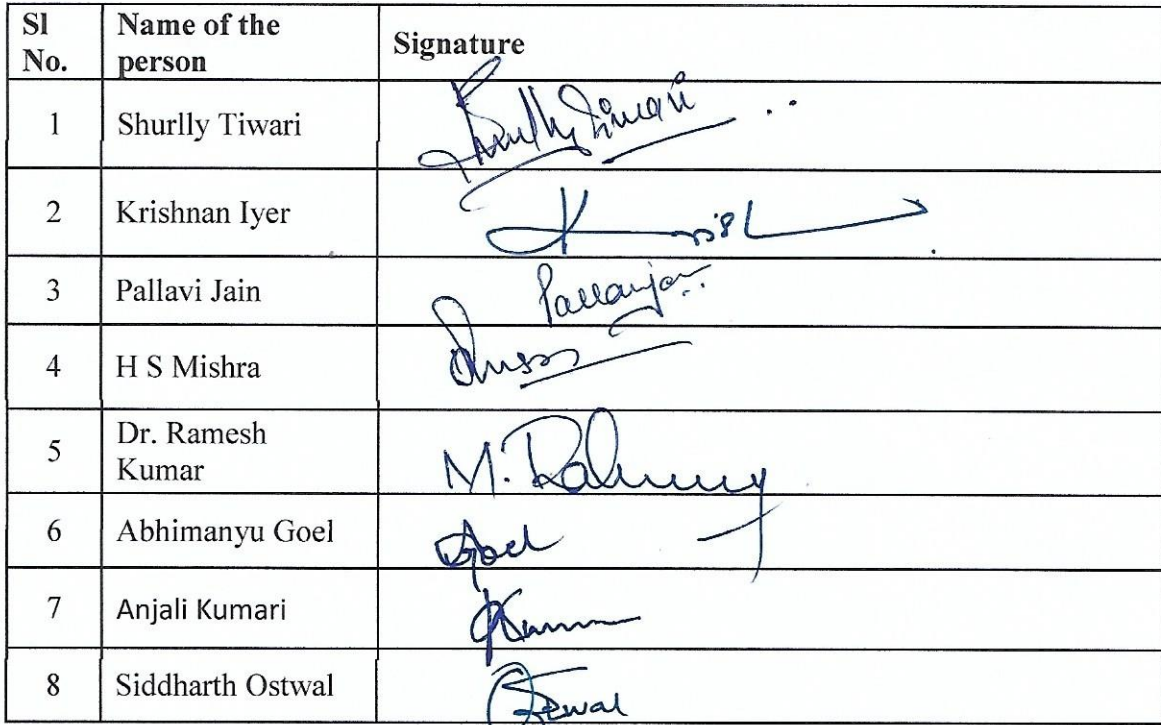 Sl No. Name of the person Signature
1 Shurlly Tiwari Shurlly Tiwari
2 Krishnan Iyer
3 Pallavi Jain
4 H S Mishra
5 Dr. Ramesh Kumar M.
6 Abhimanyu Goel Goel
7 Anjali Kumari
8 Siddharth Ostwal